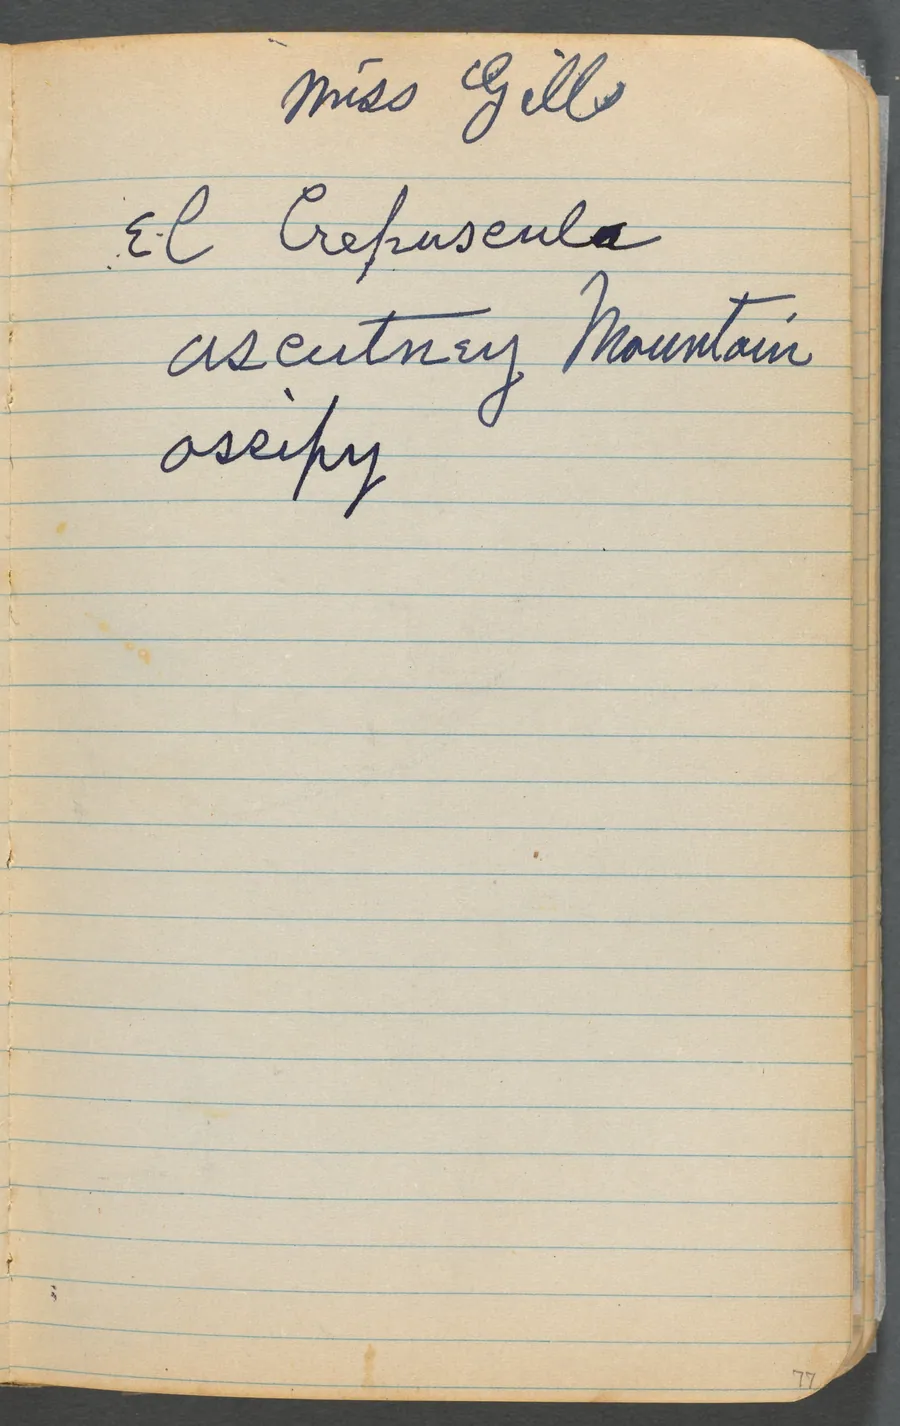 Miss Gill
El Crepuscula
ascutney Mountain
ossipy
77